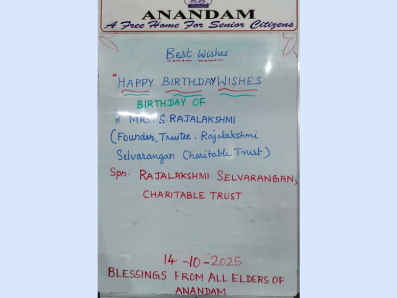 ANANDAM
A Free Home For Senior Citizens
Best Wishes
"HAPPY BIRTHDAY WISHES
BIRTHDAY OF
MRS. S. RAJALAKSHMI
(Founder, Trustee, Rajalakshmi
Selvarangan Charitable Trust)
Spn. RAJALAKSHMI SELVARANGAN,
CHARITABLE TRUST
14-10-2025
BLESSINGS FROM ALL ELDERS OF
ANANDAM